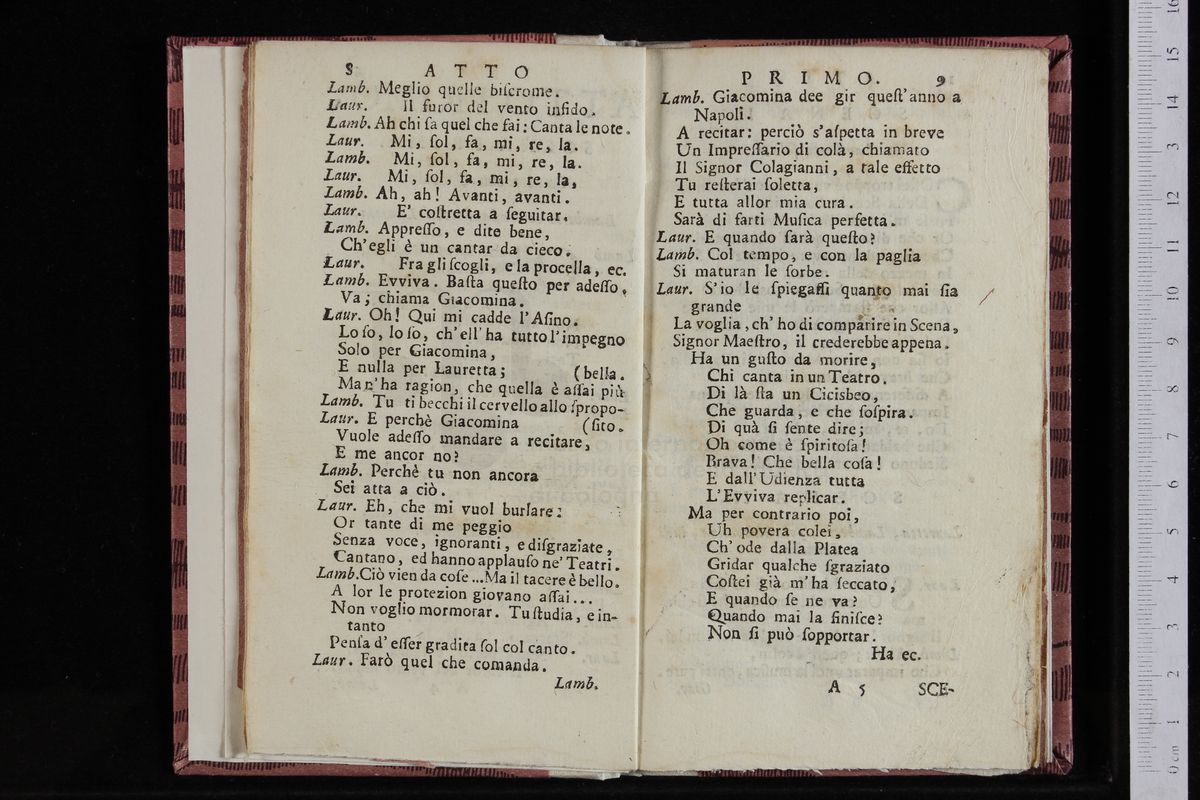 8 ATTO
Lamb. Meglio quelle biſcrome.
Laur. Il furor del vento infido.
Lamb. Ah chi ſa quel che fai: Canta le note.
Laur. Mi, ſol, fa, mi, re, la.
Lamb. Mi, ſol, fa, mi, re, la.
Laur. Mi, ſol, fa, mi, re, la,
Lamb. Ah, ah! Avanti, avanti.
Laur. E' coſtretta a ſeguitar.
Lamb. Appreſſo, e dite bene,
Ch'egli è un cantar da cieco.
Laur. Fra gli ſcogli, e la procella, ec.
Lamb. Evviva. Baſta queſto per adeſſo,
Va; chiama Giacomina.
Laur. Oh! Qui mi cadde l'Aſino.
Lo ſo, lo ſo, ch'ell'ha tutto l'impegno
Solo per Giacomina,
E nulla per Lauretta; (bella.
Ma n'ha ragion, che quella è aſſai più
Lamb. Tu ti becchi il cervello allo ſpropo-
Laur. E perchè Giacomina (ſito.
Vuole adeſſo mandare a recitare,
E me ancor no?
Lamb. Perchè tu non ancora
Sei atta a ciò.
Laur. Eh, che mi vuol burlare:
Or tante di me peggio
Senza voce, ignoranti, e diſgraziate,
Cantano, ed hanno applauſo ne' Teatri.
Lamb. Ciò vien da coſe ... Ma il tacere è bello.
A lor le protezion giovano aſſai...
Non voglio mormorar. Tu ſtudia, e in-
tanto
Penſa d'eſſer gradita ſol col canto.
Laur. Farò quel che comanda.
Lamb.
PRIMO. 9
Lamb. Giacomina dee gir queſt'anno a
Napoli.
A recitar: perciò s'aſpetta in breve
Un Impreſſario di colà, chiamato
Il Signor Colagianni, a tale effetto
Tu reſterai ſoletta,
E tutta allor mia cura.
Sarà di farti Muſica perfetta.
Laur. E quando ſarà queſto?
Lamb. Col tempo, e con la paglia
Si maturan le ſorbe.
Laur. S'io le ſpiegaſſi quanto mai ſia
grande
La voglia, ch' ho di comparire in Scena,
Signor Maeſtro, il crederebbe appena.
Ha un guſto da morire,
Chi canta in un Teatro.
Di là ſta un Cicisbeo,
Che guarda, e che ſoſpira.
Di quà ſi ſente dire;
Oh come è ſpiritoſa!
Brava! Che bella coſa!
E dall'Udienza tutta
L'Evviva replicar.
Ma per contrario poi,
Uh povera colei,
Ch' ode dalla Platea
Gridar qualche ſgraziato
Coſtei già m'ha ſeccato,
E quando ſe ne va?
Quando mai la finiſce?
Non ſi può ſopportar.
Ha ec.
A 5 SCE-
0 cm 1 2 3 4 5 6 7 8 9 10 11 12 13 14 15 16